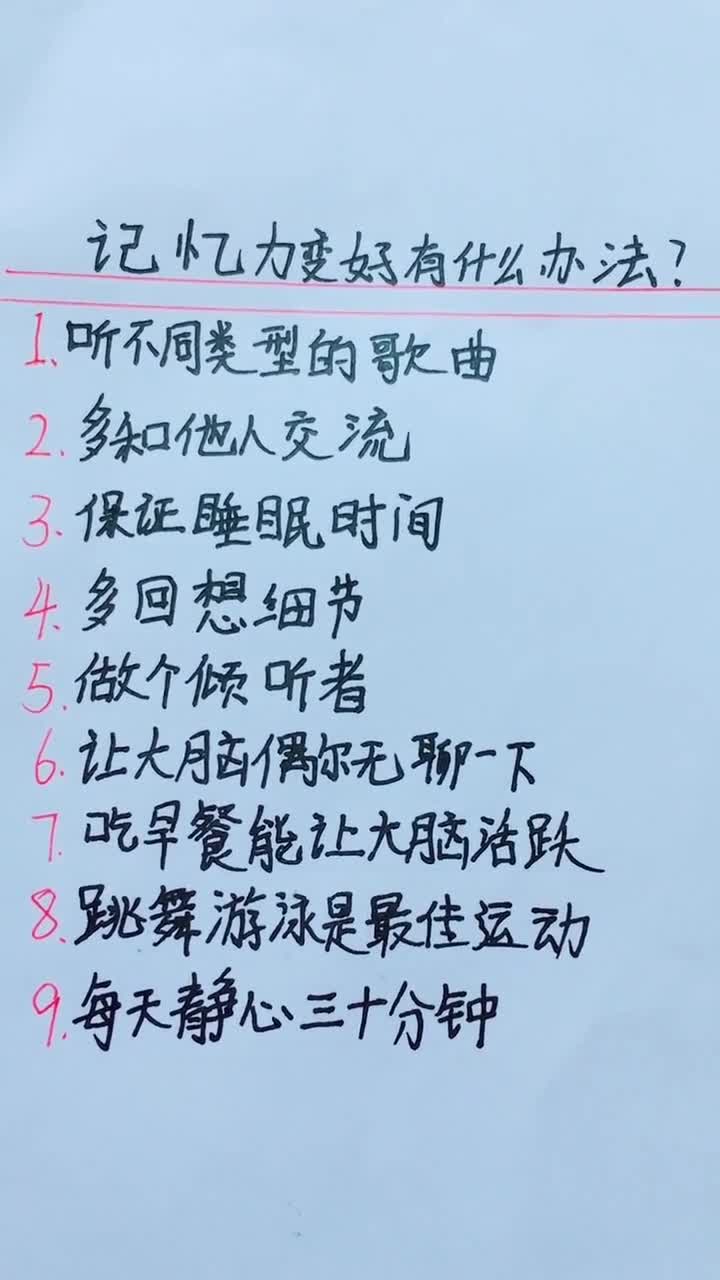 记忆力变好有什么办法?
1.听不同类型的歌曲
2.多和他人交流
3.保证睡眠时间
4.多回想细节
5.做个倾听者
6.让大脑偶尔无聊一下
7.吃早餐能让大脑活跃
8.跳舞游泳是最佳运动
9.每天静心三十分钟